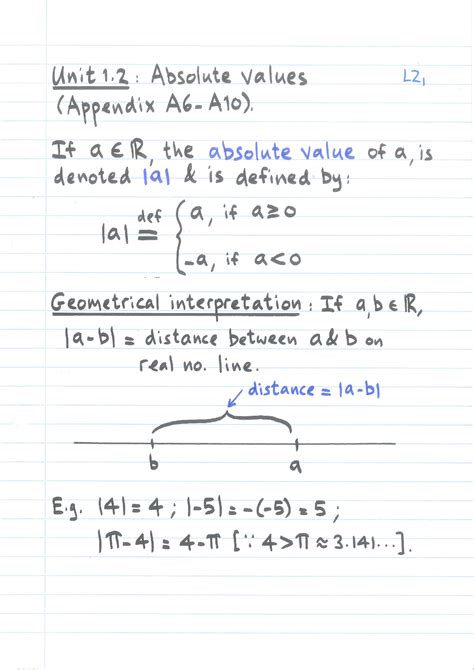 Unit 1.2 : Absolute values L2₁
(Appendix A6-A10).
If a ∈ ℝ, the absolute value of a, is
denoted |a| & is defined by:
|a| def= { a, if a ≥ 0
-a, if a < 0
Geometrical interpretation : If a, b ∈ ℝ,
|a-b| = distance between a & b on
real no. line.
distance = |a-b|
b a
E.g. |4| = 4 ; |-5| = -(-5) = 5 ;
|π-4| = 4-π [∵ 4>π≈3.141...].